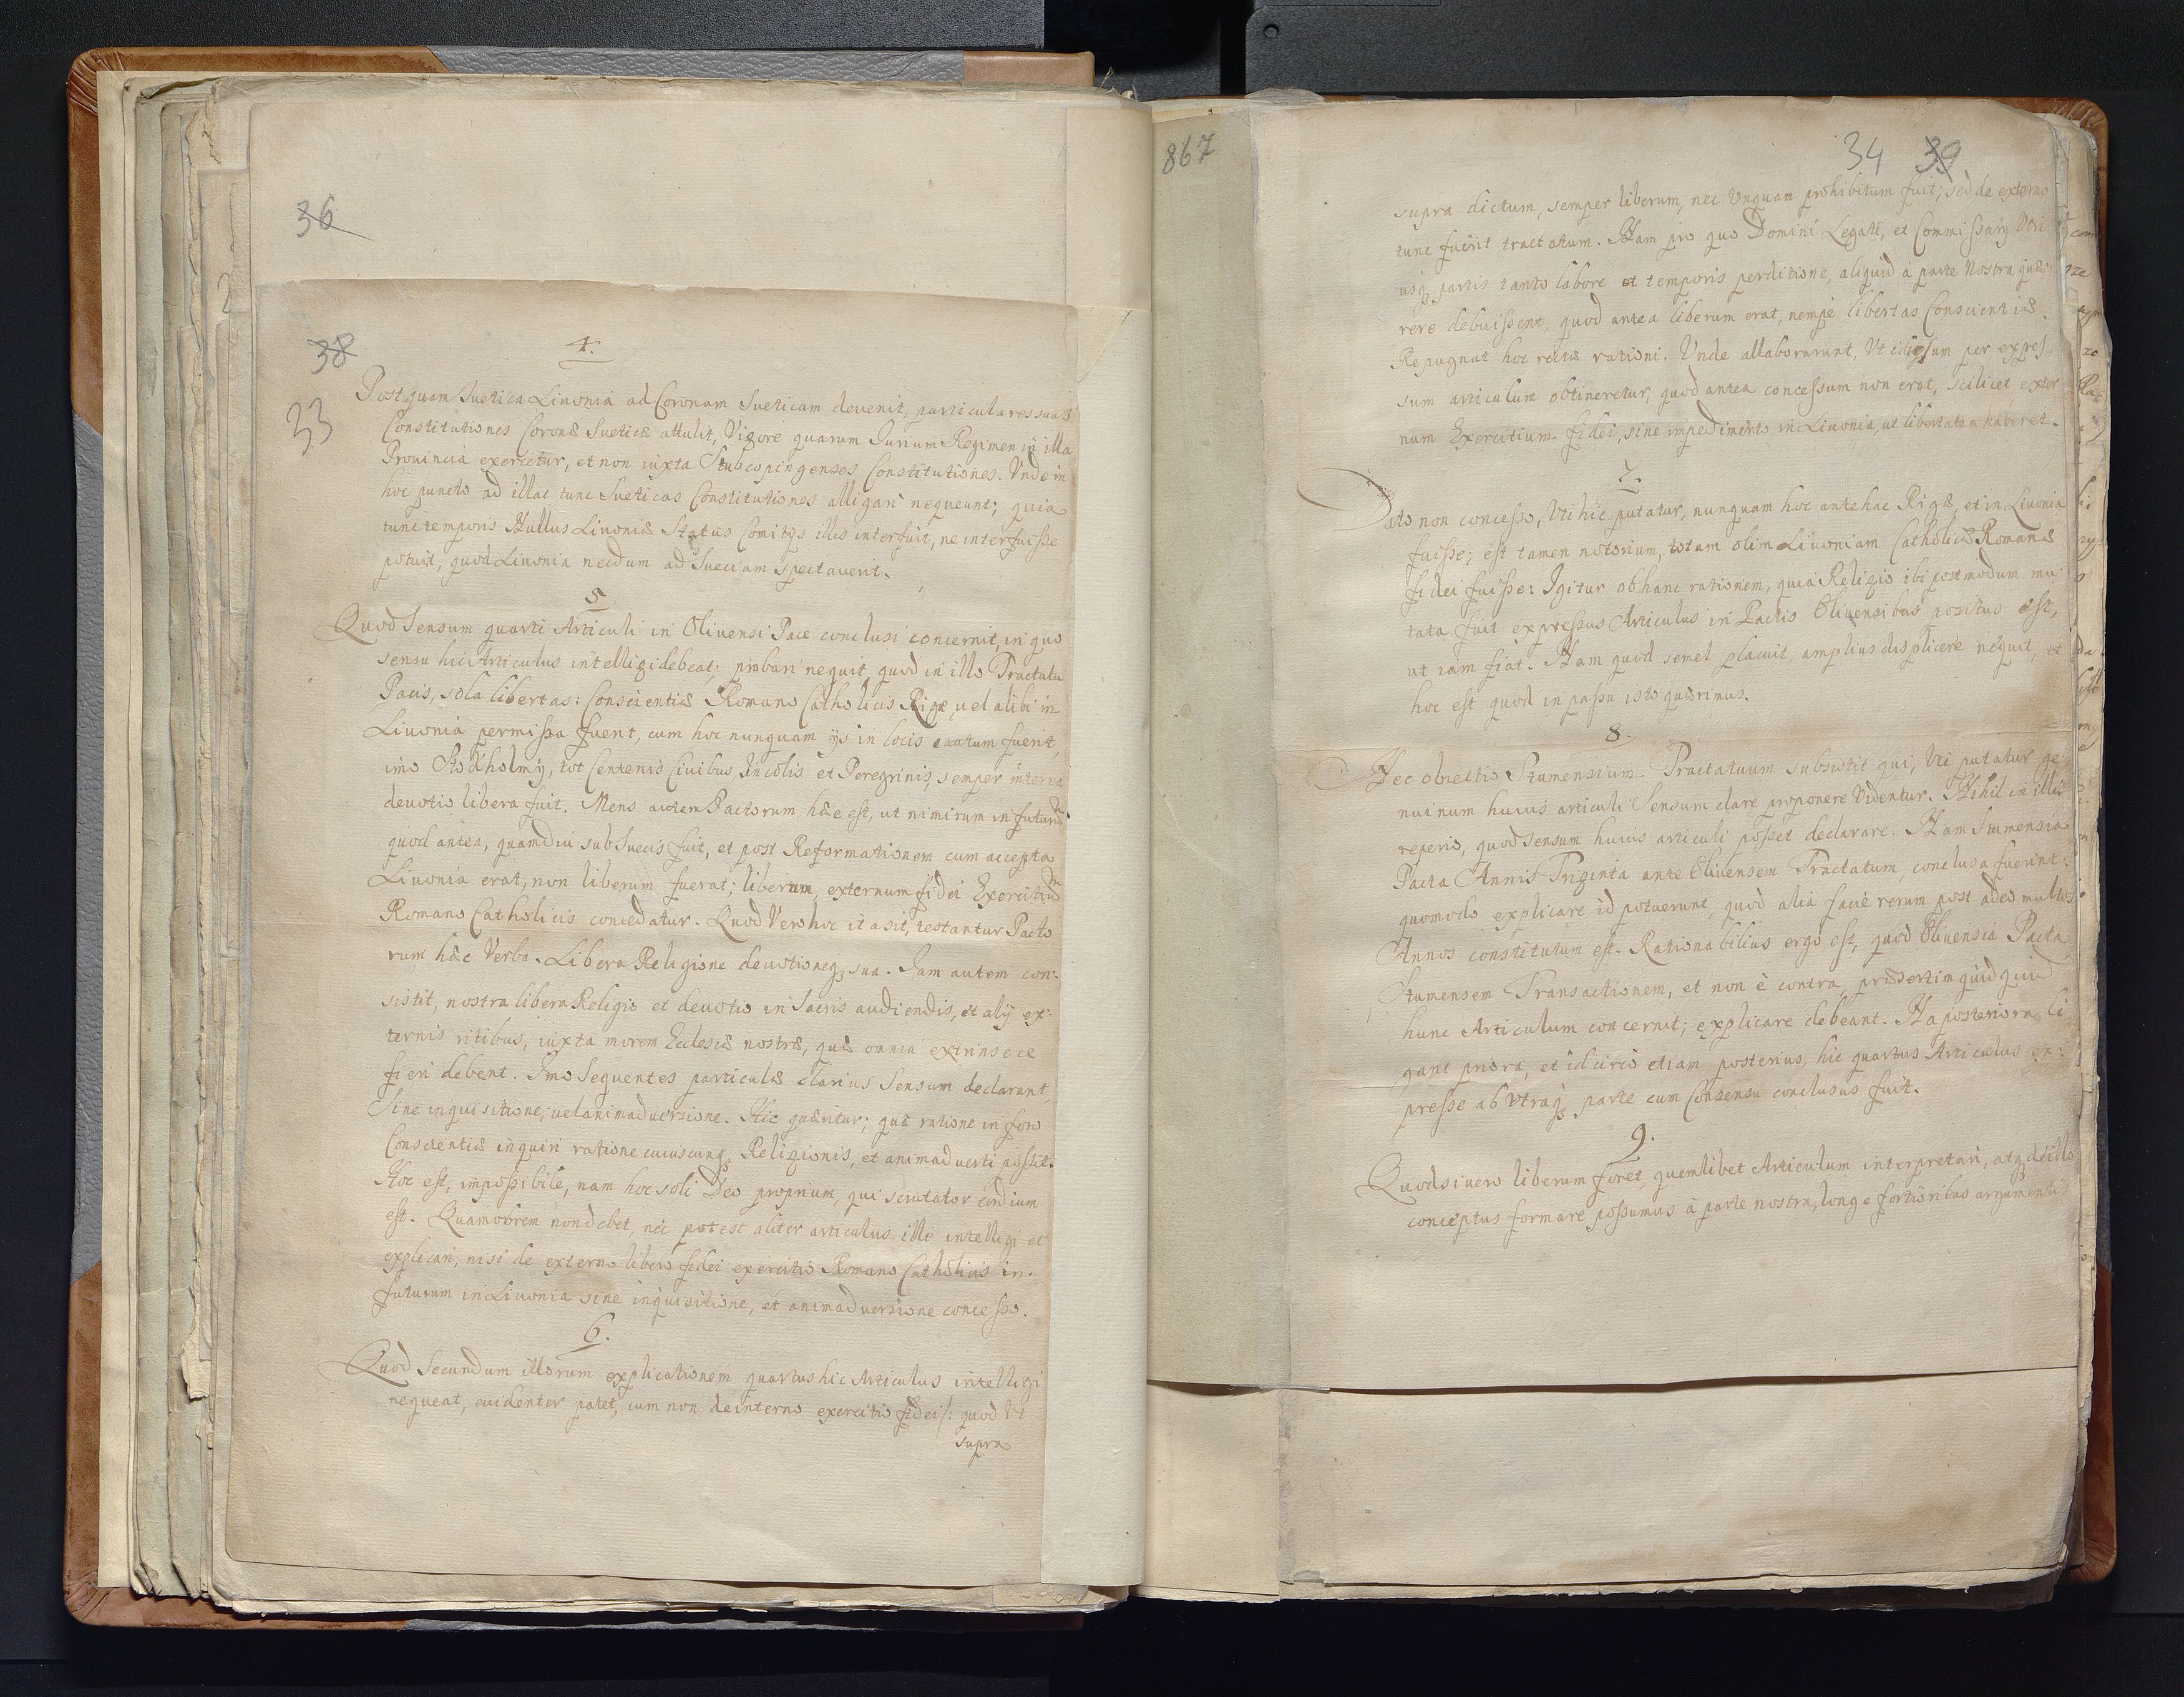 36
38
33
4.
Postquam Suetica Liuonia ad Coronam Sueticam devenit, particulares suas
Constitutiones Coronæ Sueticæ attulit, Vigore quarum Iurium Regimen in illa
Prouincia exercetur, et non iuxta Stubcopingenses Constitutiones. Vnde in
hoc puncto ad illac tunc Sueticas Constitutiones alligari nequeunt; quia
tunc temporis Nullus Liuoniæ Status Comitijs illis interfuit, ne interfuisse
potuit, quod Liuonia necdum ad Sueciam spectaverit.
5
Quod Sensum quarti Articuli in Oliuensi Pace conclusi concernit, in quo
sensu hic Articulus intelligi debeat; probari nequit, quod in illo Tractatu
Pacis, sola libertas: Conscientiæ Romano Catholicis Rigæ, uel alibi in
Liuonia permissa fuerit, cum hoc nunquam ijs in locis cautum fuerit,
imo Stokholmij, tot Centenis Ciuibus, Incolis et Peregrinis, semper interna
deuotio libera fuit. Mens autem Pactorum hæc est, ut nimirum in futurum
quod antea, quamdiu sub Suecis fuit, et post Reformationem cum accepta
Liuonia erat, non liberum fuerat; liberum, externum fidei Exercitium
Romano Catholicis concedatur. Quod Vero hoc ita sit, testantur Pacto
rum hæc Verba. Libera Religione deuotioneq sua. Iam autem con:
sistit, nostra libera Religio et deuotio in Sacris audiendis, et alij ex:
ternis ritibus, iuxta morem Ecclesiæ nostræ, quæ omnia extrinsece
fieri debent. Imo Sequentes particulæ clarius Sensum declarant,
Sine inquisitione, uel animaduersione. Hic quæritur; quâ ratione in foro
Conscientiæ inquiri ratione cuiuscunq Religionis, et animaduerti possit.
Hoc est, impossibile, nam hoc soli Deo proprium, qui scrutator cordium
est. Quamobrem non debet, nec potest aliter articulus ille intelligi et
explicari, nisi de externo libero fidei exercitio Romano Catholicis in
futurum in Liuonia sine inquisitione, et animaduersione concesso.
6.
Quod Secundum illorum explicationem quartus hic Articulus intelligi
nequeat, euidenter patet, cum non de interno exercitio fidei /: quod Vt
supra
867
34 39
supra dictum, semper liberum, nec Vnquam prohibitum fuit; sed de externo
tunc fuerit tractatum. Nam pro quo Domini Legati, et Commissarij Vtri
usq partis tanto labore et temporis perditione, aliquid à parte Nostra quæ
rere debuissent, quod antea liberum erat, nempe libertas Conscientiæ.
Repugnat hoc rectæ rationi. Vnde allaborarunt, Vt id ipsum per expres
sum articulum obtineretur, quod antea concessum non erat, scilicet exter
num Exercitium fidei, sine impedimento in Liuonia, ut libertatem haberet.
7.
Dato non concesso, Vti hic putatur, nunquam hoc antehac Rigæ, et in Liuonia
fuisse; est tamen notorium, totam olim Liuoniam Catholicæ Romanæ
fidei fuisse: Igitur ob hanc rationem, quia Religio ibi postmodum mu
tata fuit expressus Articulus in Pactis Oliuensibus positus est,
ut iam fiat. Nam quod semel placuit, amplius displicere nequit, et
hoc est quod in passu isto quærimus.
8.
Nec obiectio Stumensium Tractatuum subsistit qui, Vti putatur ge
nuinum huius articuli Sensum clare proponere Videntur. Nihil in illis
reperio, quod sensum huius articuli posset declarare. Nam Stumensia
Pacta Annis Triginta ante Oliuensem Tractatum, conclusa fuerint:
quomodo explicare id potuerunt, quod alia facie rerum post adeo multos
Annos constitutum est. Rationabilius ergo est, quod Oliuensia Pacta,
Stumensem Transactionem, et non è contra, præsertim quidquid
hunc Articulum concernit; explicare debeant. Na posteriora li
gant priora, et idcirco etiam posterius, hic quartus Articulus ex:
presse ab Vtraq parte cum Consensu conclusus fuit.
9.
Quodsi uero liberum foret, quemlibet Articulum interpretari, atq de illo
conceptus formare possumus à parte nostra, longe fortioribus argumentis